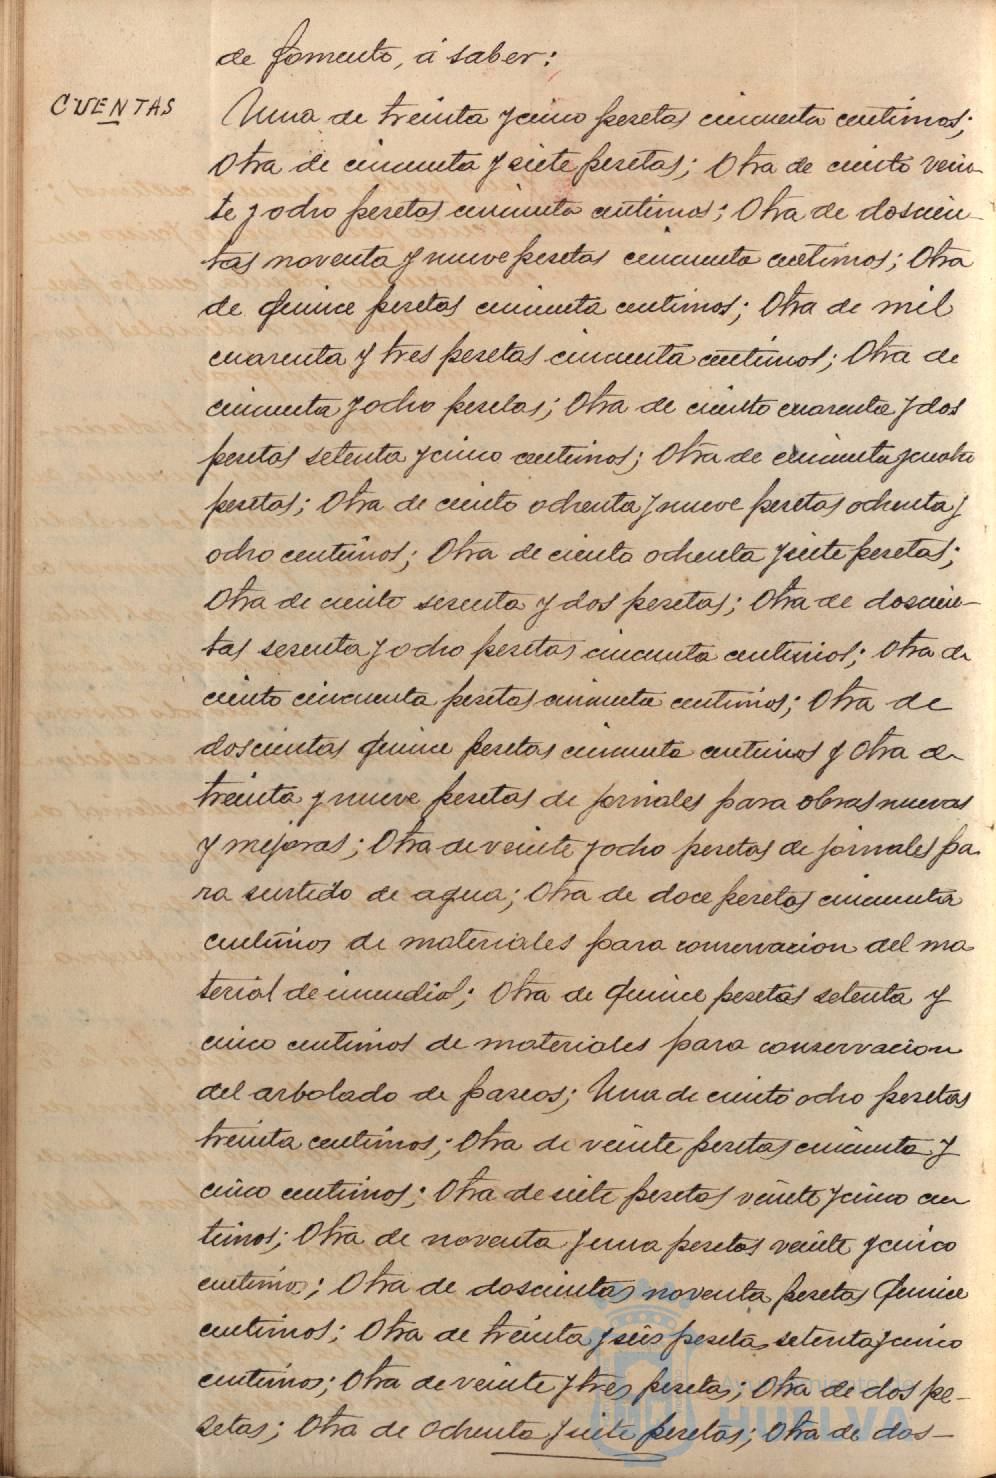 de fomento, á saber:
CUENTAS
Una de treinta y cinco pesetas cincuenta centimos;
Otra de cincuenta y siete pesetas; Otra de ciento vein-
te y ocho pesetas cincuenta centimos; Otra de doscien-
tas noventa y nueve pesetas cincuenta centimos; Otra
de Quince pesetas cincuenta centimos; Otra de mil
cuarenta y tres pesetas cincuenta centimos; Otra de
cincuenta y ocho pesetas; Otra de ciento cuarenta y dos
pesetas setenta y cinco centimos; Otra de cincuenta y cuatro
pesetas; Otra de ciento ochenta y nueve pesetas ochenta y
ocho centimos; Otra de ciento ochenta y siete pesetas;
Otra de ciento sesenta y dos pesetas; Otra de doscien-
tas sesenta y ocho pesetas cincuenta centimos; Otra de
ciento cincuenta pesetas cincuenta centimos; Otra de
doscientas quince pesetas cincuenta centimos y Otra de
treinta y nueve pesetas de jornales para obras nuevas
y mejoras; Otra de veinte y ocho pesetas de jornales pa-
ra surtido de agua; Otra de doce pesetas cincuenta
centimos de materiales para conservacion del ma
terial de incendios; Otra de Quince pesetas setenta y
cinco centimos de materiales para conservacion
del arbolado de paseos; Una de ciento ocho pesetas
treinta centimos; Otra de veinte pesetas cincuenta y
cinco centimos; Otra de siete pesetas veinte y cinco cen
timos; Otra de noventa y una pesetas veinte y cinco
centimos; Otra de doscientas noventa pesetas Quince
centimos; Otra de treinta y seis pesetas setenta y cinco
centimos; Otra de veinte y tres pesetas; Otra de dos pe-
setas; Otra de Ochenta y siete pesetas; Otra de dos-
Ayuntamiento de
HUELVA